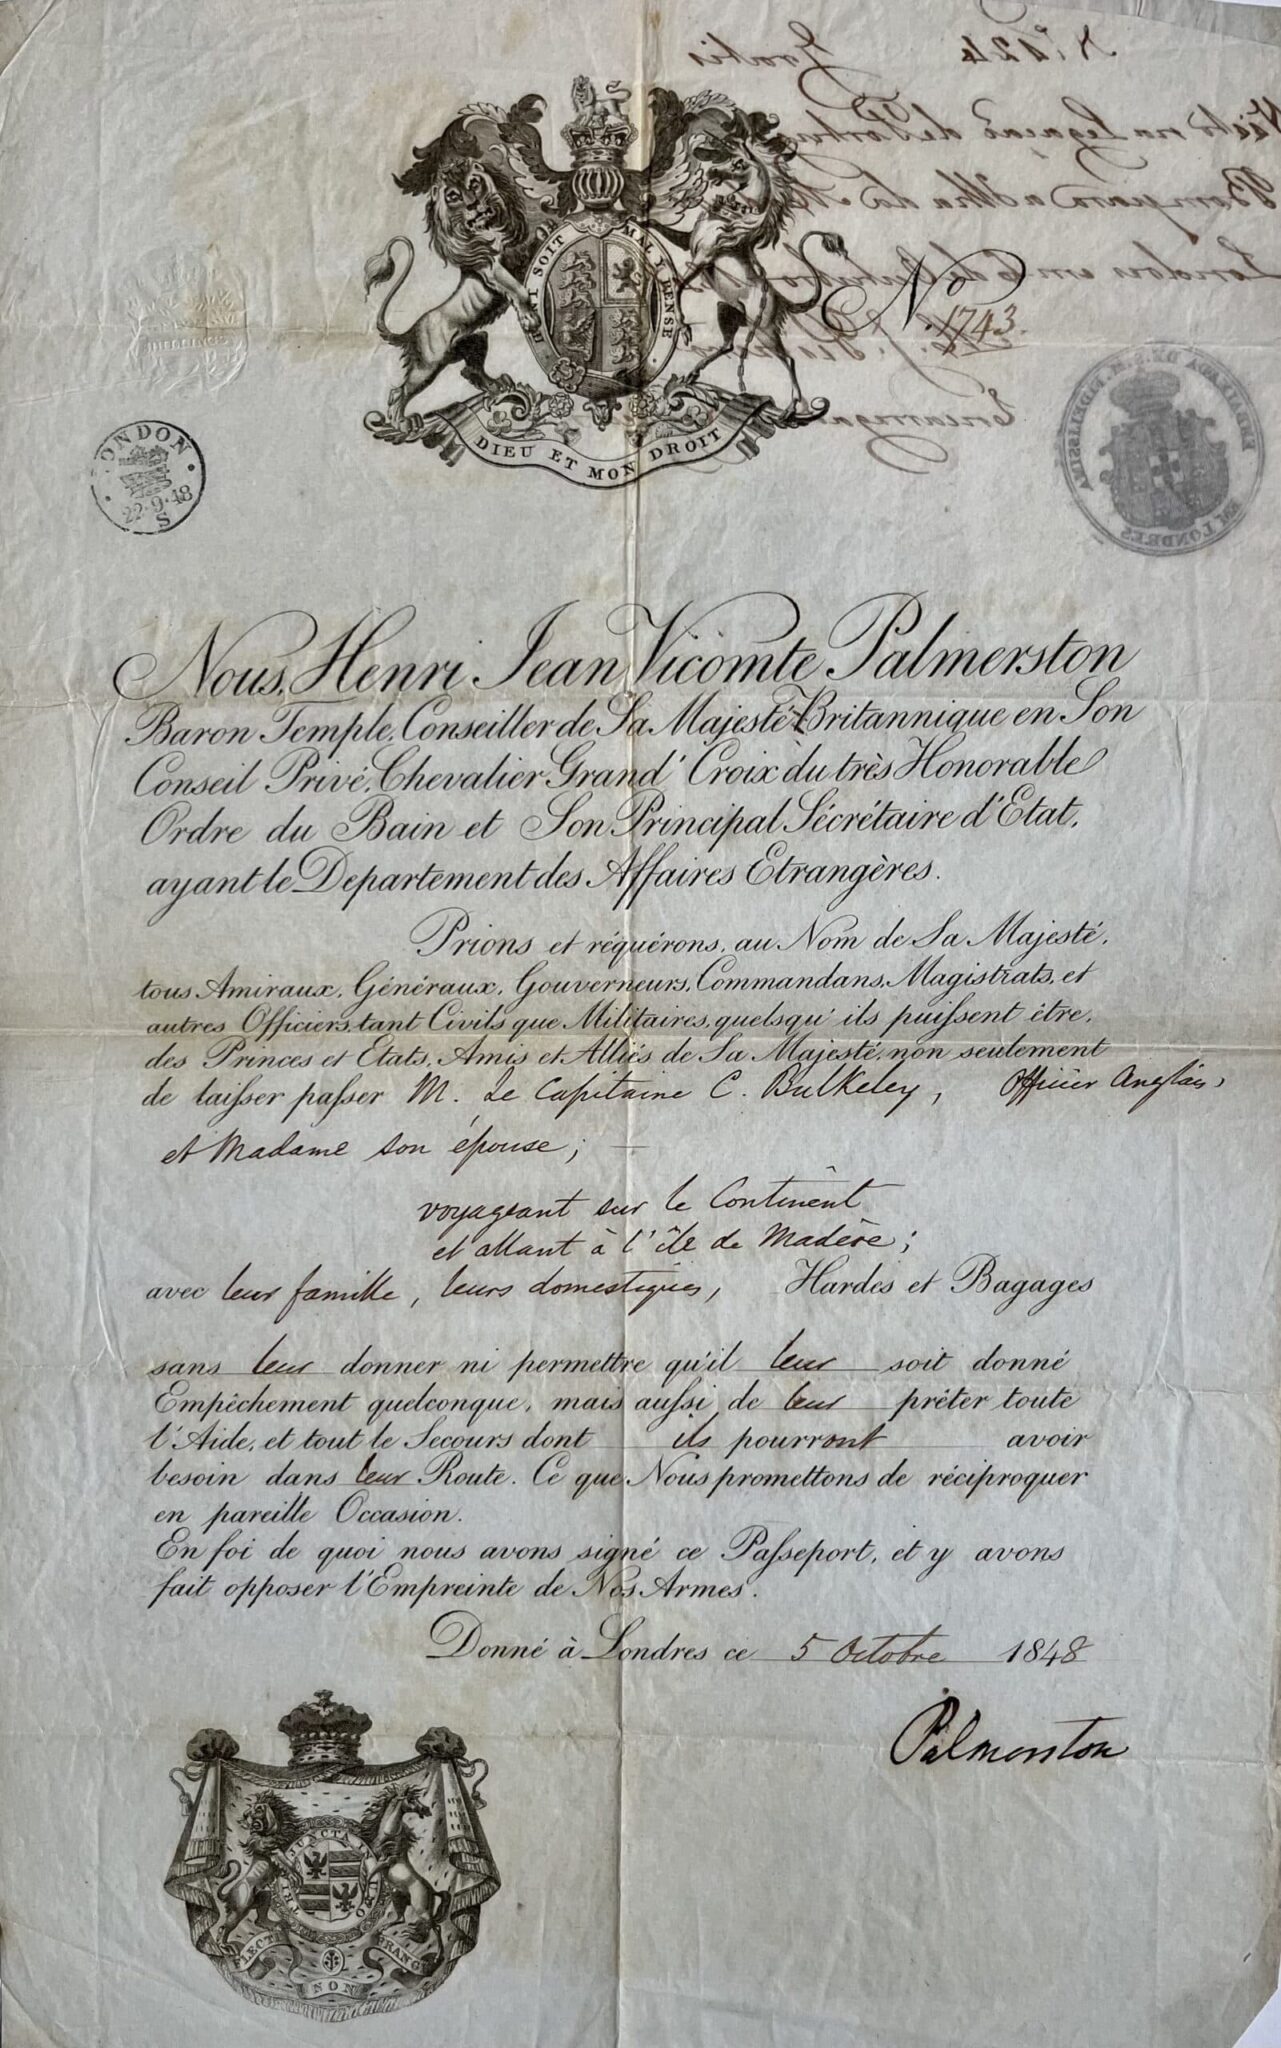 HONI SOIT QUI MAL Y PENSE
DIEU ET MON DROIT
No. 1743
LONDON
22·9·48
S
Nº 124 Gratis
Visto na Legação de Portugal
Londres em 6 de Outubro
EM LONDRES
Nous, Henri Jean Vicomte Palmerston
Baron Temple, Conseiller de Sa Majesté Britannique en Son
Conseil Privé, Chevalier Grand' Croix du très Honorable
Ordre du Bain et Son Principal Sécrétaire d'Etat,
ayant le Departement des Affaires Etrangères.
Prions et réquérons, au Nom de Sa Majesté,
tous Amiraux, Généraux, Gouverneurs, Commandans, Magistrats, et
autres Officiers, tant Civils que Militaires, quelsqu' ils puissent être,
des Princes et Etats, Amis et Alliés de Sa Majesté, non seulement
de laisser passer M. Le Capitaine C. Bulkeley, Officier Anglais,
et Madame son épouse;
voyageant sur le Continent
et allant à l'île de Madère;
avec leur famille, leurs domestiques, Hardes et Bagages
sans leur donner ni permettre qu'il leur soit donné
Empêchement quelconque, mais aussi de leur prêter toute
l'Aide, et tout le Secours dont ils pourront avoir
besoin dans leur Route. Ce que Nous promettons de réciproquer
en pareille Occasion.
En foi de quoi nous avons signé ce Passeport, et y avons
fait opposer l'Empreinte de Nos Armes.
Donné à Londres ce 5 Octobre 1848
Palmerston
TRIA JUNCTA IN UNO
FLECTI NON FRANGI